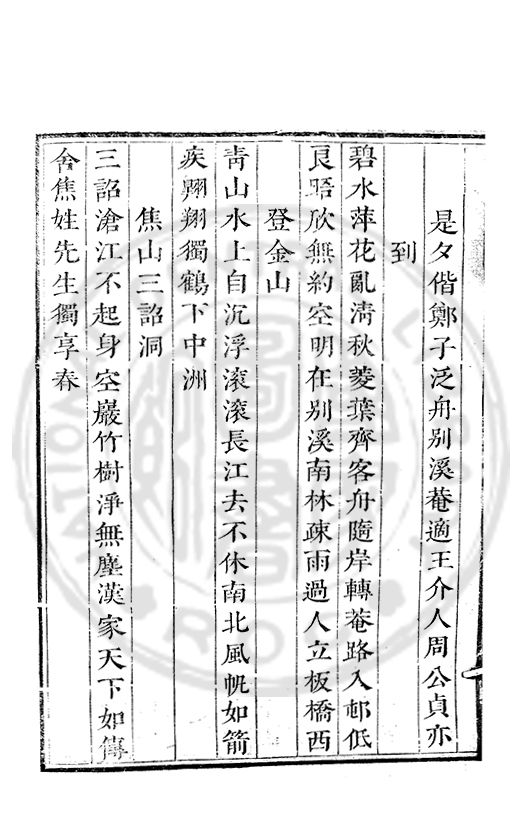 是夕偕鄭子泛舟別溪菴適王介人周公貞亦
到
碧水萍花亂淸秋菱葉齊客舟隨岸轉菴路入邨低
良晤欣無約空明在別溪南林疎雨過人立板橋西
登金山
靑山水上自沉浮滚滚長江去不休南北風帆如箭
疾翺翔獨鶴下中洲
焦山三詔洞
三詔滄江不起身空巖竹樹淨無塵漢家天下如傳
舍焦姓先生獨享春